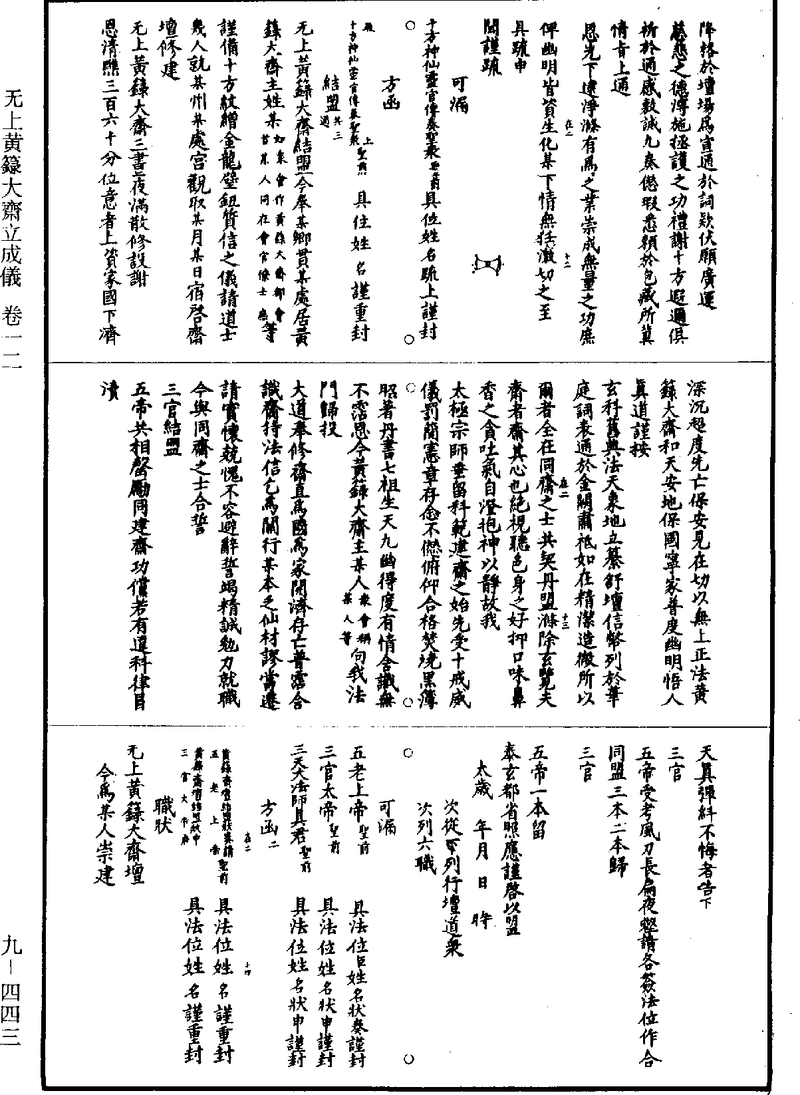 降格於壇場爲宣通於詞款伏願廣運
慈悲之德溥施拯護之功禮謝十方遐邇俱
祈於通感數誠九奏愆瑕悉賴於包藏所冀
情旨上通
恩光下逮淨滌有爲之業崇成無量之功庶
俾幽明皆資生化某下情無任激切之至
具疏申
聞謹疏
可漏
十方神仙靈官傳奏聖衆聖前具位姓名疏上謹封
方函
疏上
十方神仙靈官傳奏聖衆聖前 具位姓名謹重封
結盟共三通
无上黃籙大齋結盟今奉某鄉貫某處居黃
籙大齋主姓某如衆會作黃籙大齋都會首某人同在會官僚士庶等
謹備十方紋繒金龍璧鈕質信之儀請道士
幾人就某州某處宮觀取某月某日宿啓齋
壇修建
无上黃籙大齋三晝夜滿散修設謝
恩清醮三百六十分位意者上資家國下濟
深沉超度先亡保安見在切以無上正法黃
籙大齋和天安地保國寧家普度幽明悟人
真道謹按
玄科舊典法天象地立纂舒壇信幣列於華
庭詞表通於金闕肅祗如在精潔造微所以
爾者全在同齋之士共契丹盟滌除玄覽夫
齋者齋其心也絕視聽色身之好抑口味鼻
香之貪吐氣自澄抱神以靜故我
太極宗師垂留科範建齋之始先受十戒威
儀罰簡憲章存念不僁俯仰合格焚燒黑簿
昭著丹書七祖生天九幽得度有情含識無
不霑恩今黃籙大齋主某人衆會稱某人等句我法
門歸投
大道奉修齋直爲國爲家開濟存亡普霑含
識齋持法信乞爲關行某本乏仙材謬當遷
請實懷兢愧不容避辭誓竭精誠勉力就職
今與同齋之士合誓
三官結盟
五帝共相罄勵同建齋功儻若有違科律目
瀆
天真彈糾不悔者告下
三官
五帝受考風刀長扃夜壑請各簽法位作合
同盟三本二本歸
三官
五帝一本留
奉玄都省照應謹啓以盟
太歲 年 月 日 時
次從事列行壇道衆
次列六職
可漏
五老上帝聖前 具法位臣姓名狀奏謹封
三官大帝聖前 具法位姓名狀申謹封
三天大法師真君聖前 具法位姓名狀申謹封
方函二
黃籙齋宿結盟狀奏請五老上帝聖前 具法位姓名謹重封
黃籙齋宿結盟狀申三官大帝 具法位姓名謹重封
職狀
无上黃籙大齋壇
今爲某人崇建
无上黃籙大齋立成儀 卷一二
九—四四三